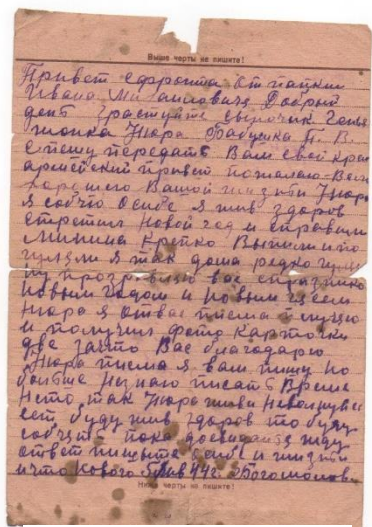 Выше черты не пишите!
Привет с фронта от папки
Ивана Михайловича Добрый
день Зраствуйте сыночик Генья
жонка Нюра Бабушка П. В.
спешу передать Вам свой крас
армейский привет пожалаю Вам
хорошего Вашой жизни Нюра
я собчю о себе я жив здоров
стретил новой год и справил
имянина Крепко Выпили и по
гуляли я так дома редко гулял
ну проздравляю вас спразнико
новым годом и новым щесем
Нюра я от вас писма получаю
и получил фото карточки
две зашто Вас благодарю
Нюра писма я вам пишу но
больше незнаю писать Время
Нето, так Нюра живи неволнуйси
ест буду жив здоров то буду
собчять пока досвидания жду
ответ пишыте о себе и жизни
и что нового 44 г. Богомолов.
Ниже черты не пишите!